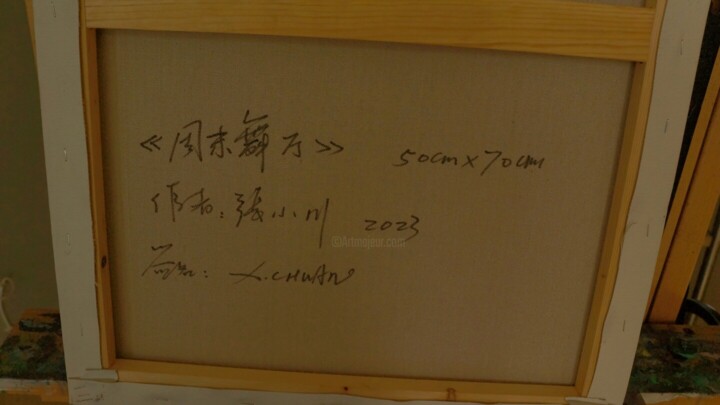 《周末舞厅》 50cm×70cm
作者：張小川 2023
©Artmajeur.com
签名：X.CHUAN